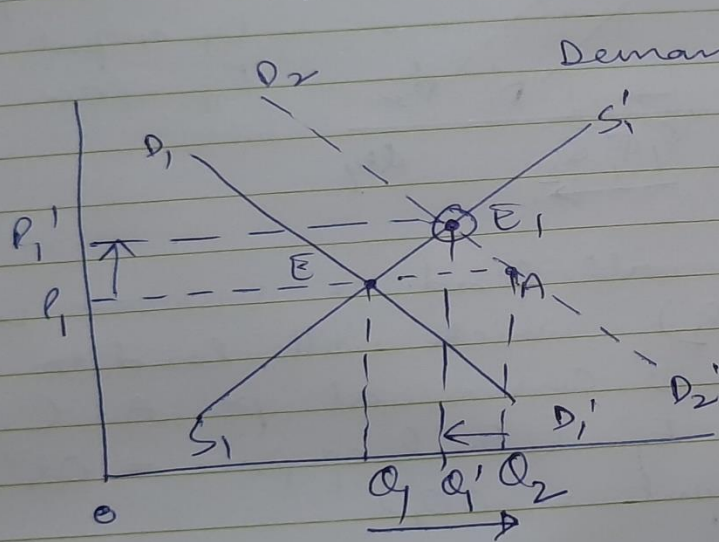 Deman
D2
S1'
D1
P1'
E1
E
P1
A
D2'
S1
D1'
Q1 Q1' Q2
O